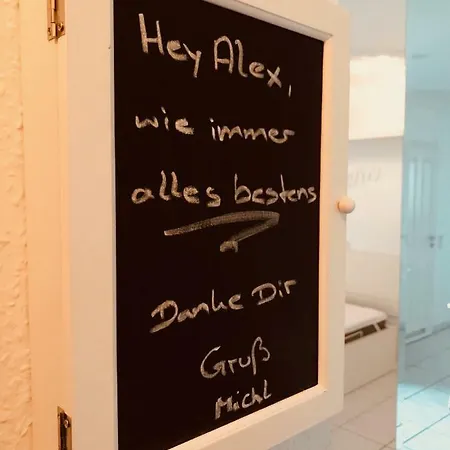 Hey Alex,
wie immer
alles bestens
Danke Dir
Gruß
Michl